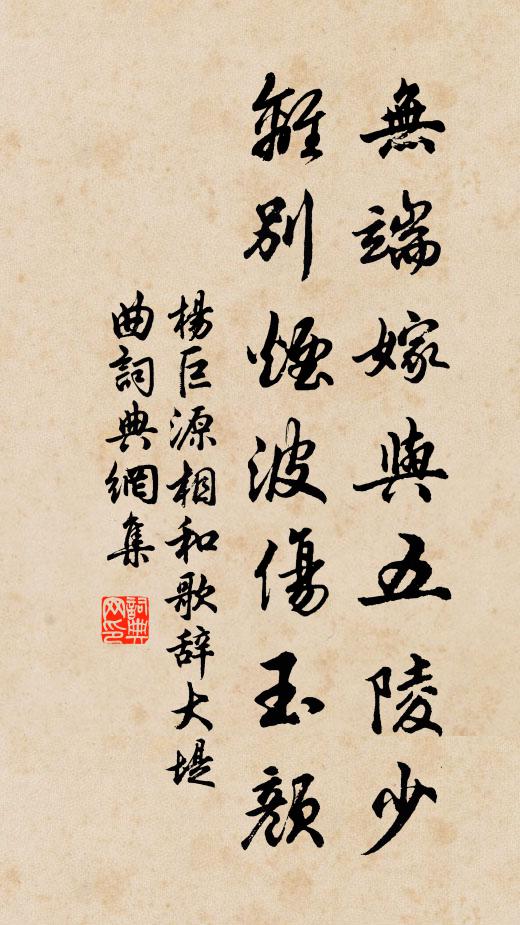 無端嫁與五陵少
離別煙波傷玉顏
楊巨源相和歌辞大堤
曲詞典網集
詞典
网印